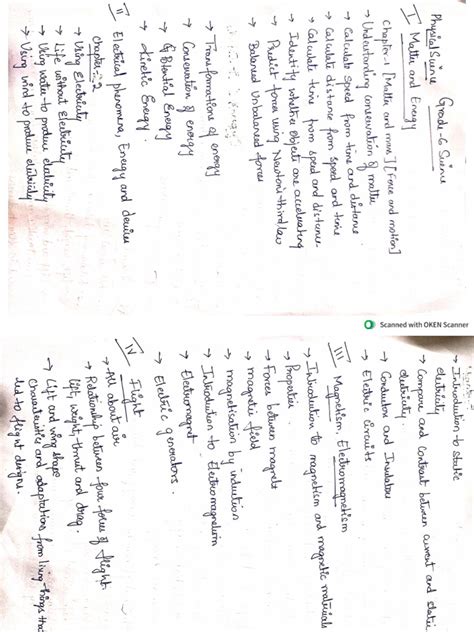 Physical Science Grade-6 Science
I Matter and Energy
Chapter-1 [Matter and mass] [Force and motion]
→ Understanding conservation of matter
→ Calculate speed from time and distance
→ Calculate distance from speed and time
→ Calculate time from speed and distance.
→ Identity whether objects are accelerating
→ Predict force using Newton's third law
→ Balanced Unbalanced forces
→ Transformations of energy
→ Conservation of energy
→ Potential Energy
→ kinetic Energy.
II Electrical phenomena, Energy and devices
Chapter-2
→ Using Electricity
→ Life without Electricity
→ Using water to produce electricity
→ Using wind to produce electricity
Scanned with OKEN Scanner
→ Introduction to static
electricity
→ Compare and contrast between current and static
electricity.
→ Conductors and Insulators
→ Electric Circuits
III Magnetism, Electromagnetism
→ Introduction to magnetism and magnetic materials
→ Properties
→ Forces between magnets
→ magnetic field
→ magnetisation by induction
→ Introduction to Electromagnetism
→ Electromagnet
→ Electric generators.
IV Flight
→ All about air
→ Relationship between four forces of flight
lift, weight, thrust and drag.
→ Lift and wing shape
Characteristics and adaptations from living things that
led to flight designs.